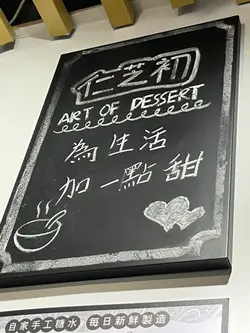 仁芝初
ART OF DESSERT
為生活
加一點甜
自家手工糖水 每日新鮮製造